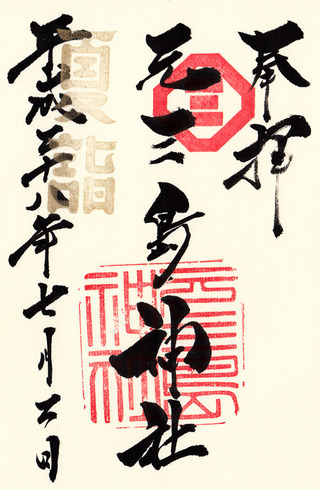 奉拝
三
元三島神社
元三島神社
夏詣
平成二十八年七月六日